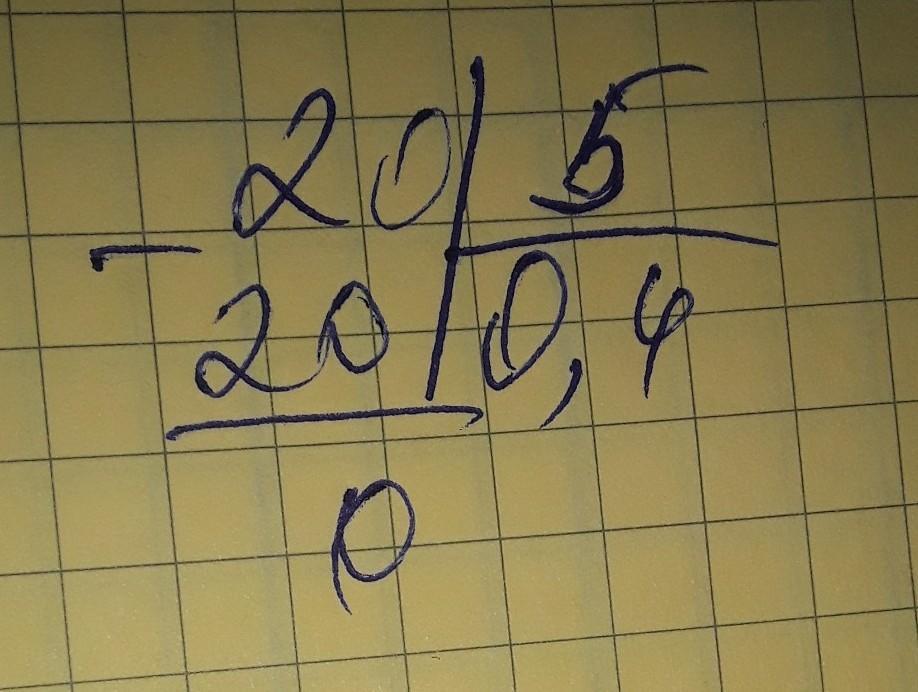 20 | 5
- 20 | 0,4
0